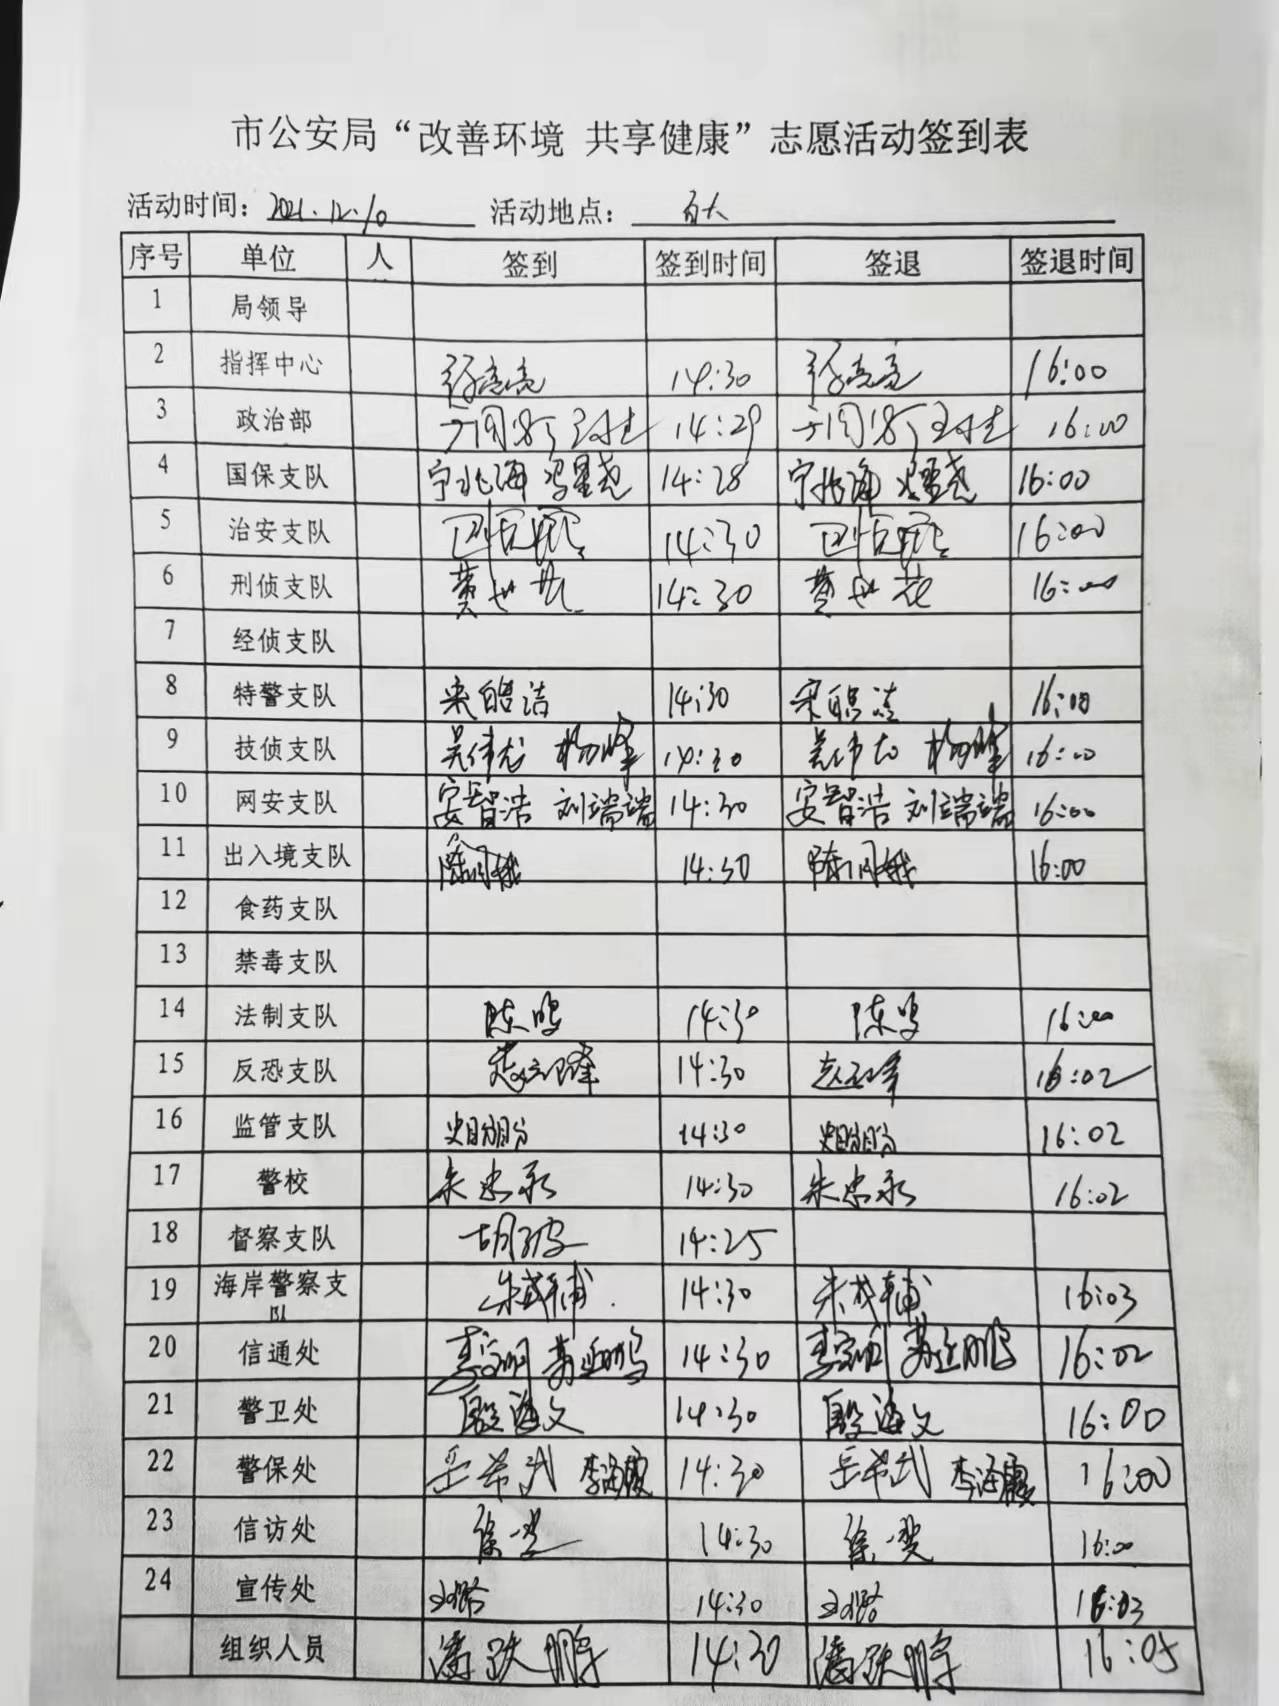 市公安局“改善环境 共享健康”志愿活动签到表
活动时间：2021.12.10 活动地点： 百大
序号 单位 人 签到 签到时间 签退 签退时间
1 局领导
2 指挥中心 亮亮 14:30 亮亮 16:00
3 政治部 14:29 16:00
4 国保支队 宁兆海 冯星尧 14:28 宁兆海 冯星尧 16:00
5 治安支队 14:30 16:00
6 刑侦支队 黄世花 14:30 黄世花 16:00
7 经侦支队
8 特警支队 宋皓洁 14:30 宋皓洁 16:00
9 技侦支队 吴伟龙 杨峰 14:30 吴伟龙 杨峰 16:00
10 网安支队 安智浩 刘端端 14:30 安智浩 刘端端 16:00
11 出入境支队 陈月娥 14:30 陈月娥 16:00
12 食药支队
13 禁毒支队
14 法制支队 陈鸣 14:30 陈鸣 16:00
15 反恐支队 14:30 16:02
16 监管支队 14:30 16:02
17 警校 朱忠永 14:30 朱忠永 16:02
18 督察支队 胡波 14:25
19 海岸警察支队 朱成辅 14:30 朱成辅 16:03
20 信通处 14:30 16:02
21 警卫处 殷海文 14:30 殷海文 16:00
22 警保处 岳希武 李海霞 14:30 岳希武 李海霞 16:00
23 信访处 徐斐 14:30 徐斐 16:00
24 宣传处 14:30 16:03
组织人员 潘跃鹏 14:30 潘跃鹏 16:05